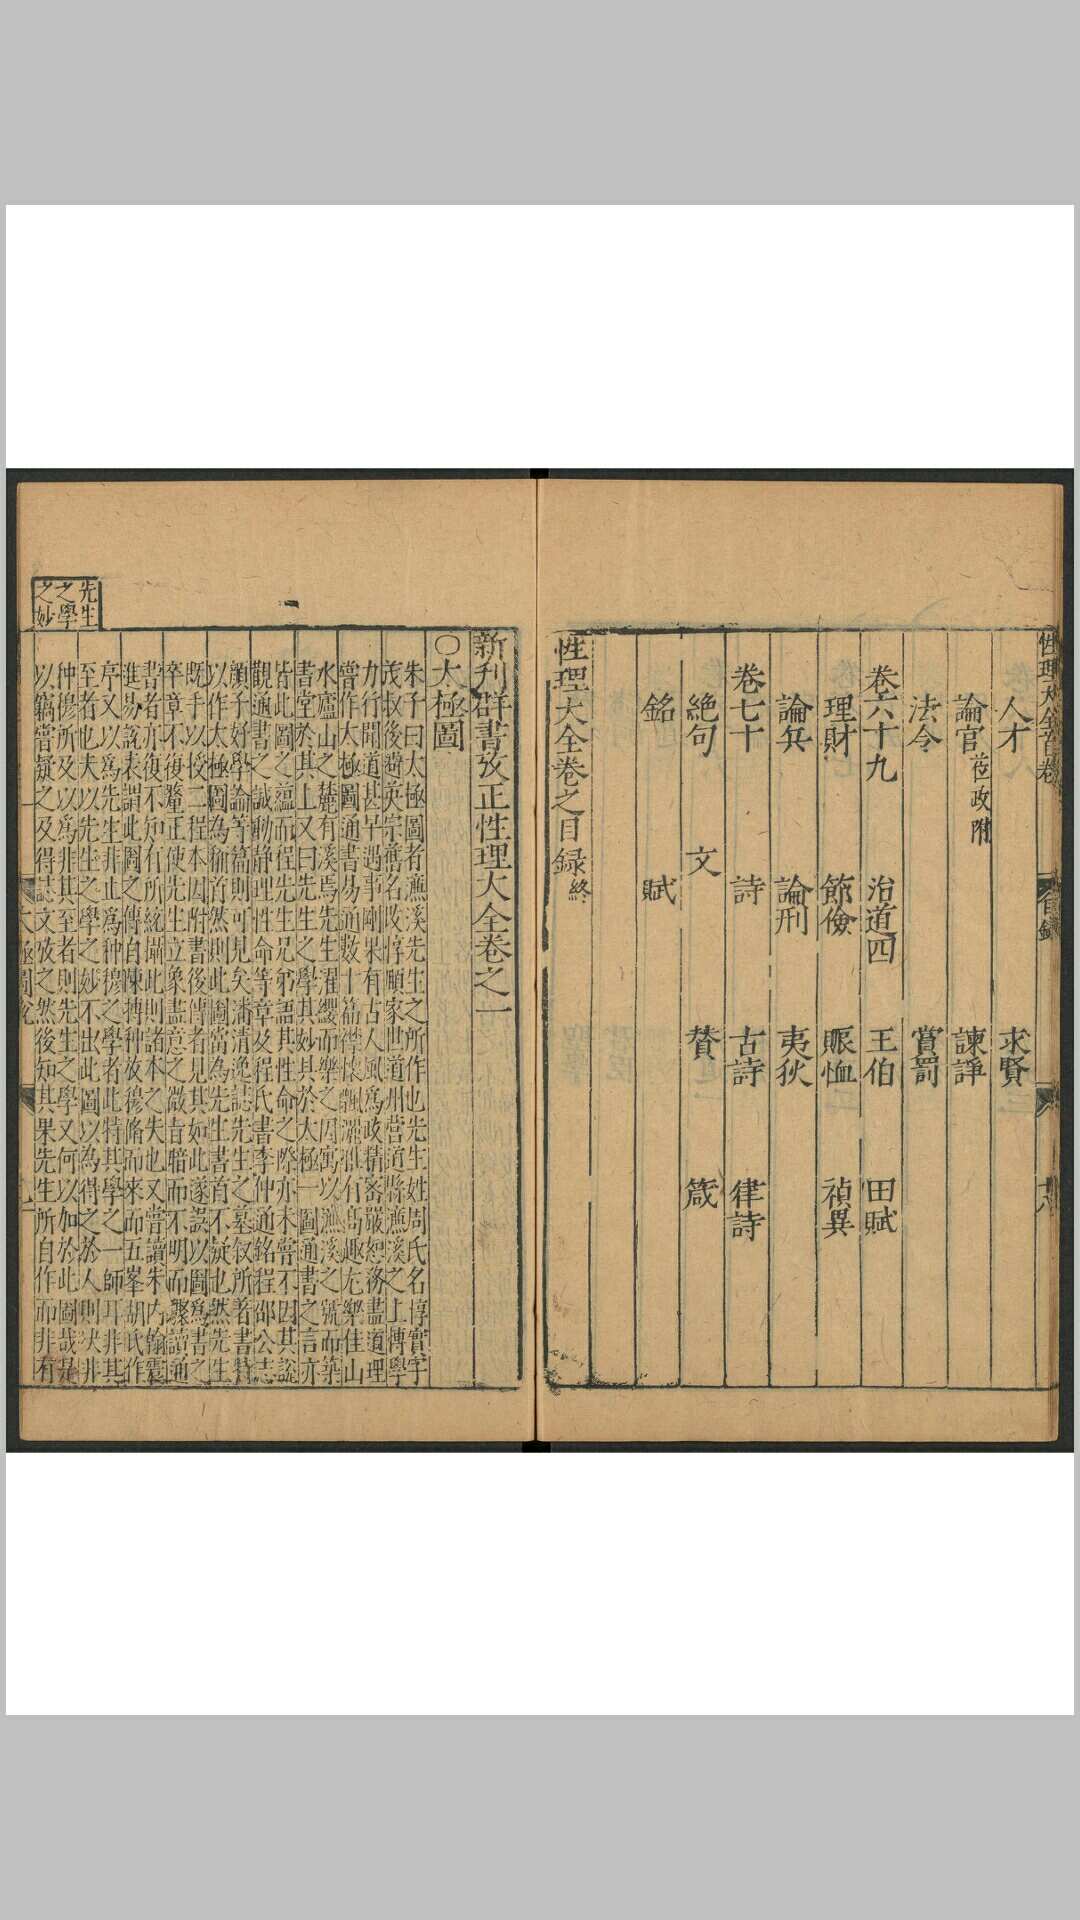 性理大全首卷
目錄
十八
人才 求賢
論官 莅政附 諫諍
法令 賞罰
卷六十九 治道四 王伯 田賦
理財 節儉 賑恤 禎異
論兵 論刑 夷狄
卷七十 詩 古詩 律詩
絶句 文 賛 箴
銘 賦
性理大全卷之目録終
新刊群書攷正性理大全卷之一
○太極圖
朱子曰太極圖者濂溪先生之所作也先生姓周氏名惇實字
茂叔後避英宗舊名改惇頤家世道州营道縣濂溪之上博學
力行聞道甚早遇事剛果有古人風爲政精密嚴恕務盡道理
嘗作太極圖通書易通數十篇襟懷飄灑雅有髙趣尤樂佳山
水廬山之麓有溪焉先生濯纓而樂之因寓以濂溪之號而築
書堂於其上又曰先生之學其妙具於太極一圖通書之言亦
皆此圖之蘊而程先生兄弟語其性命之際亦未嘗不因其說
觀通書之誠動静理性命等章及程氏書李仲通銘程邵公志
顔子好學論等篇則可見矣潘清逸誌先生之墓叙所著書特
以作太極圖為稱首然則此圖當為先生書首不疑也然先生
既手以授二程本因附書後傳者見其如此遂誤以圖爲書之
卒章不復釐正使先生立象盡意之微旨暗而不明而驟讀通
書者亦復不知有所統攝此則諸本之失也又嘗讀朱内翰震
進易說表謂此圖之傳自陳摶种放穆脩而來而五峯胡氏作
序又以爲先生非止爲种穆之學者此特其學之一師耳非其
至者也夫以先生之學之妙不出此圖以為得之於人則决非
种穆所及以爲非其至者則先生之學又何以加於此圖哉是
以竊嘗疑之及得誌文攷之然後知其果先生所自作而非有
先生
之學
之妙
太極圖說